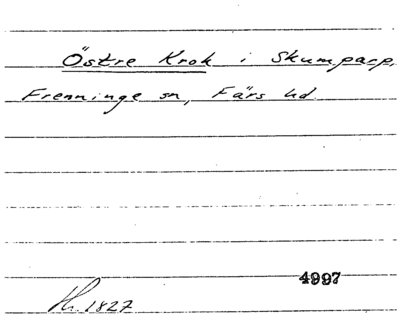 Östre Krok i Skumparp,
Frenninge sn, Färs hd.
4997
Hr. 1827